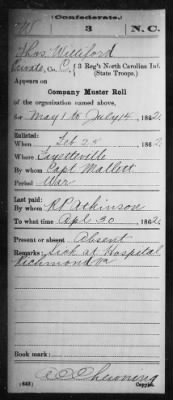 (Confederate.)
W 3 N. C.
Thos. Williford
Private, Co. C, 3 Reg't North Carolina Inf.
(State Troops.)
Appears on
Company Muster Roll
of the organization named above,
for May 1 to July 1st, 1862.
Enlisted:
When Feb 28, 1862
Where Fayetteville
By whom Capt Mallett
Period War
Last paid:
By whom R P Atkinson
To what time Apl 30, 1862.
Present or absent Absent
Remarks: Sick at Hospital
Richmond Va
Book mark:
(642) Copyist.